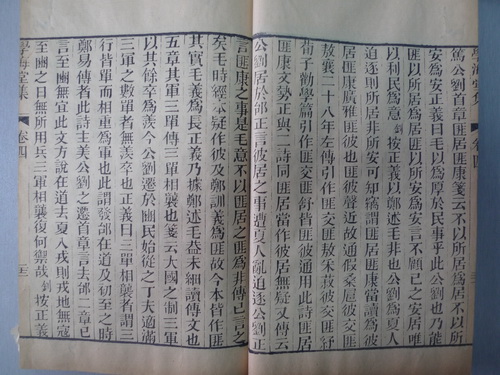 篤公劉首章匪居匪康箋云不以所居爲居不以所
安爲安正義曰毛以爲厚於民事乎此公劉
所居爲居不以所安爲安言不顧已之安居唯
以利民爲意釗按正義以鄭述毛非也公劉爲夏人
迫逐則所居非所安可知竊謂匪居匪康當讀爲彼
居彼康廣雅匪彼也匪彼聲近故通假桑扈彼交匪
敖襄二十八年左傳引作匪交匪敖采菽彼交匪舒
荀子勸學篇引作匪交匪舒皆彼匪通用此詩匪居
匪康文勢正與二詩同匪居當作彼居無疑又傳云
公劉居於邰正言彼居之事遭夏人亂迫逐公劉正
言匪康之事是毛意不以匪居之匪爲非傳已言之
矣毛時經本疑作彼及鄭訓義爲匪故今本皆作匪
其實毛義爲長正義乃據鄭述毛蓋未細讀傳文也
五章其軍三單傳三單相襲也箋云大國之制三軍
以其餘卒爲羨今公劉遷於豳民始從之丁夫適滿
三軍之數單者無羨卒也正義曰三單相襲者謂三
行皆單而相重爲軍也此謂發邰在道及初至之時
鄭易傳者此詩主美公劉之遷首章言去邰二章已
言至豳無宜此文方說在道去夏入戎則戎地無寇
至豳之日無所用兵三軍相襲復何禦哉釗按正義
學海堂集
卷四